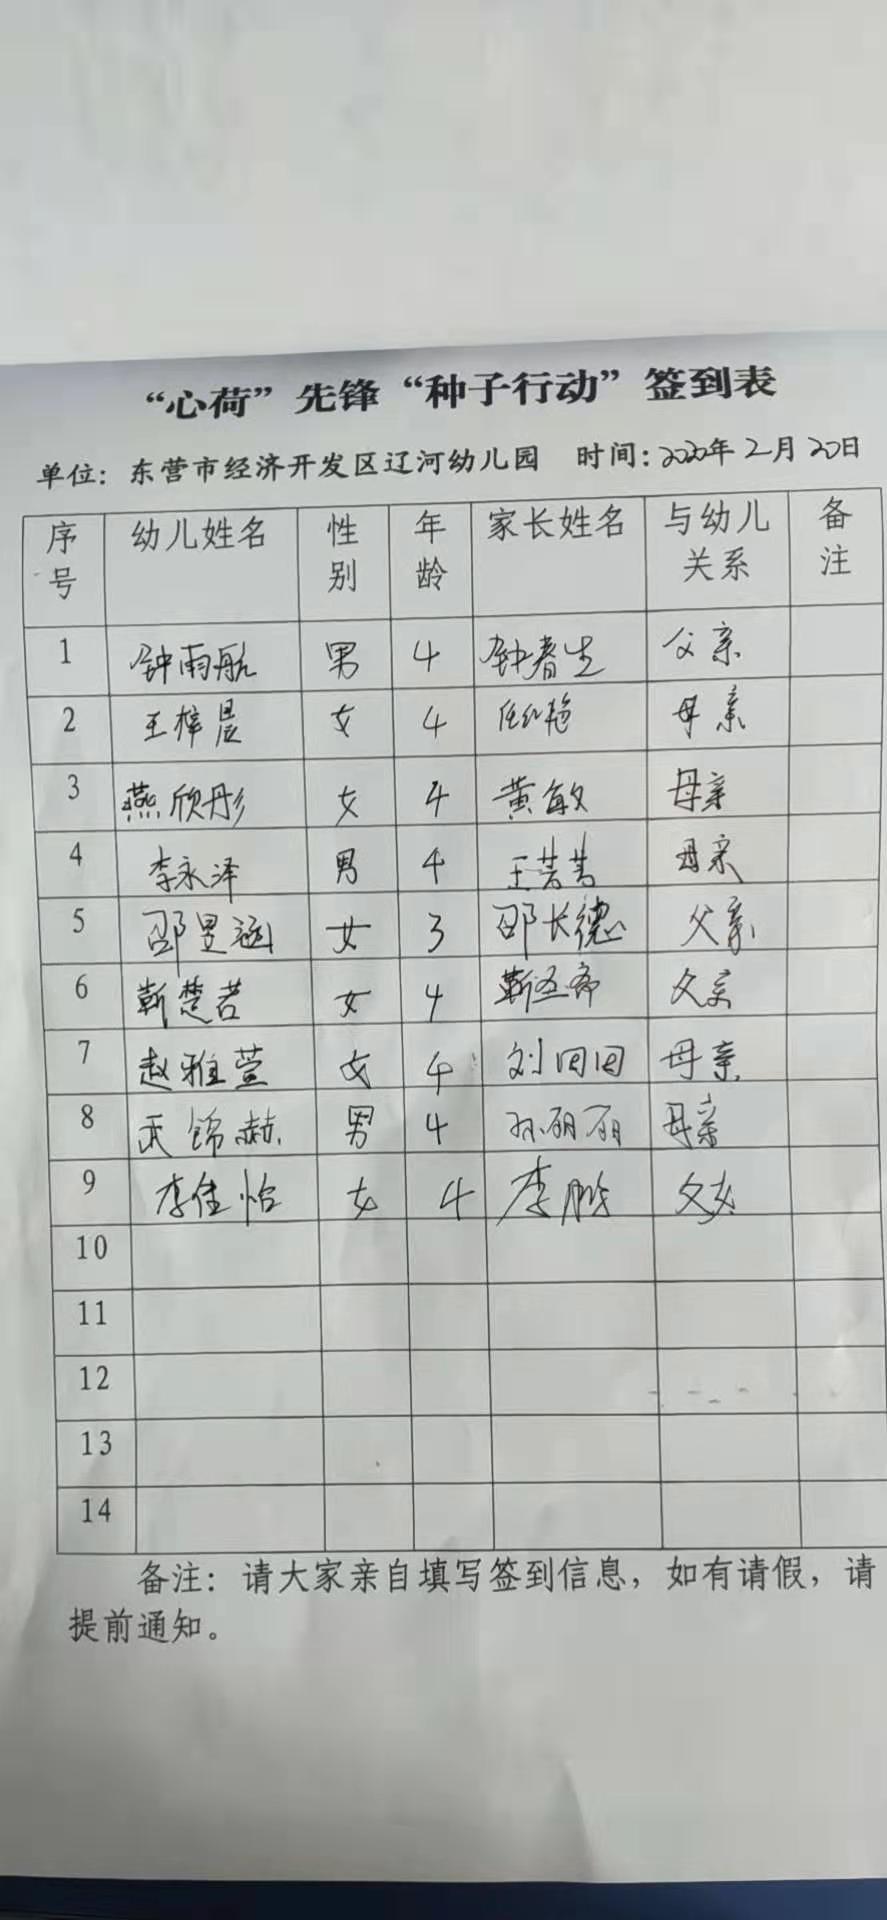 “心荷”先锋“种子行动”签到表
单位：东营市经济开发区辽河幼儿园 时间：2020年2月20日
序号 幼儿姓名 性别 年龄 家长姓名 与幼儿关系 备注
1 钟雨航 男 4 钟春生 父亲
2 王梓晨 女 4 任红艳 母亲
3 燕欣彤 女 4 黄敏 母亲
4 李永泽 男 4 王菁菁 母亲
5 邵昱涵 女 3 邵长德 父亲
6 靳楚若 女 4 靳 父亲
7 赵雅萱 女 4 刘田田 母亲
8 锦赫 男 4 孙丽丽 母亲
9 李佳怡 女 4 李 父女
10
11
12
13
14
备注：请大家亲自填写签到信息，如有请假，请
提前通知。